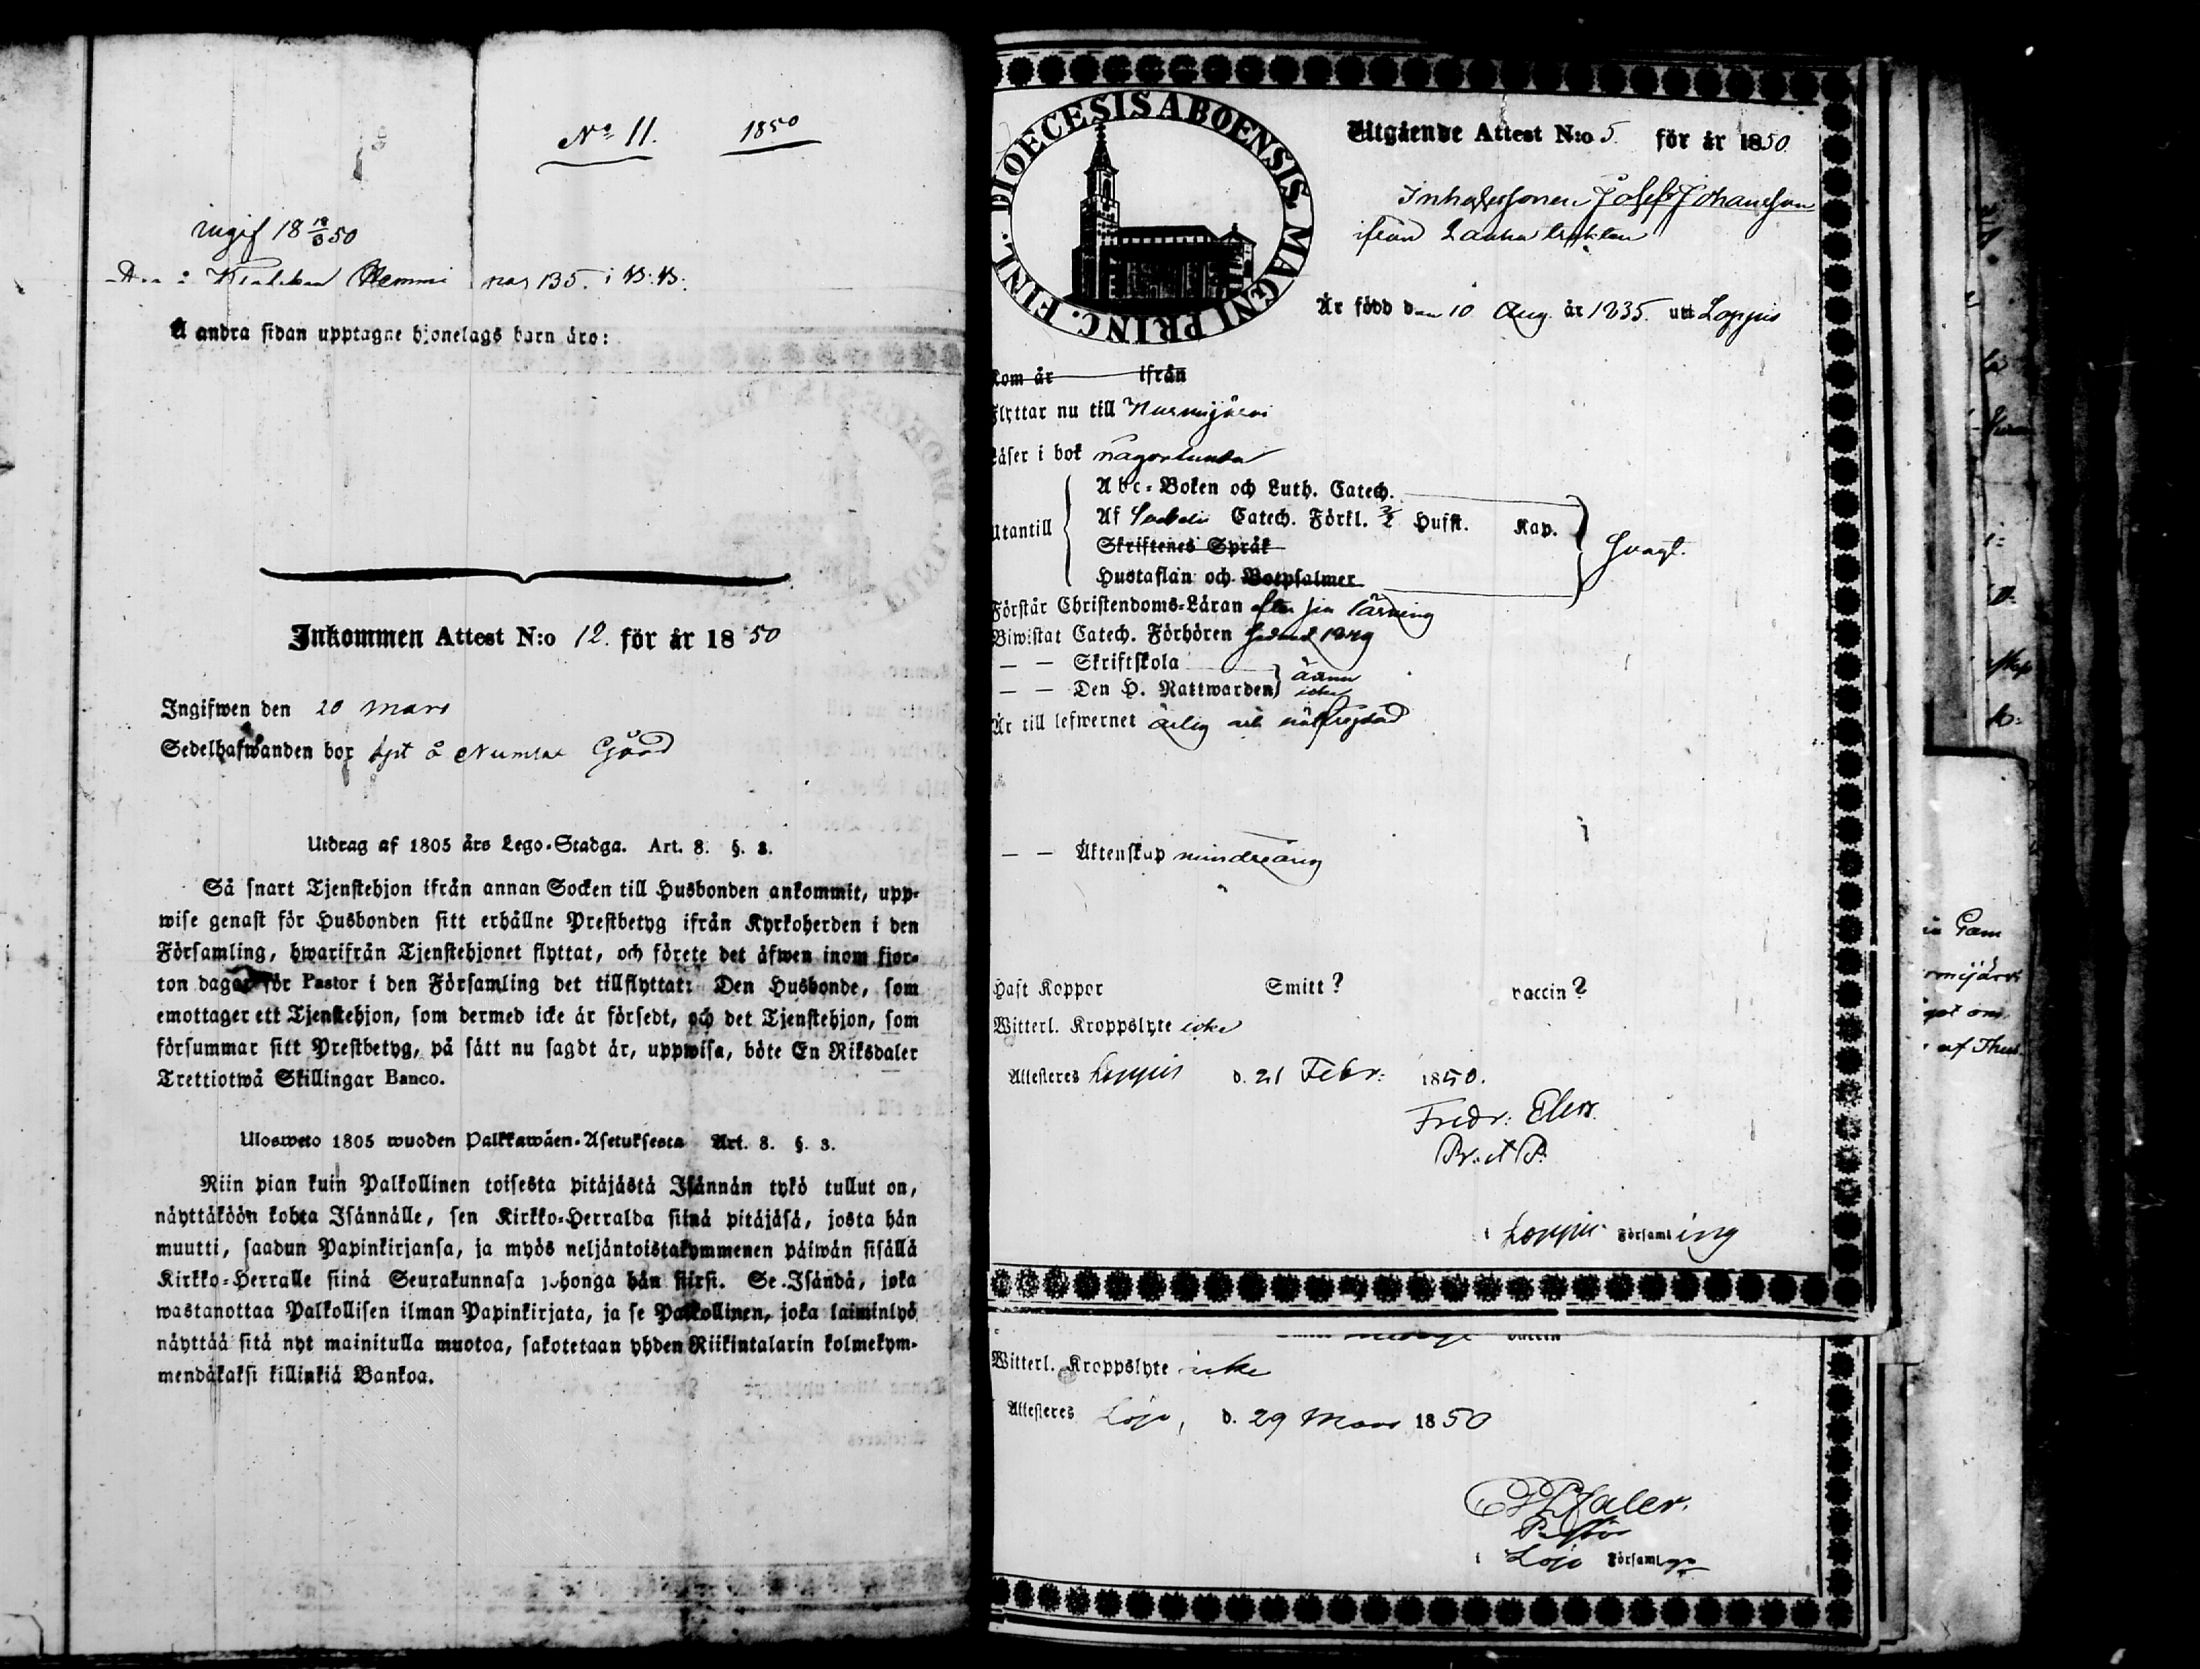 No 11. 1850
ingif 18 18/3 50
Hemmi pag 135. i B:B:
Å andra sidan upptagne hjonelags barn äro:
Inkommen Attest N:o 12. för år 1850
Ingifwen den 20 Mars
Sedelhafwanden bor å Numlax Gård
Utdrag af 1805 års Lego-Stadga. Art. 8. §. 3.
Så snart Tjenstehjon ifrån annan Socken till Husbonden ankommit, upp-
wise genast för Husbonden sitt erhållne Prestbetyg ifrån Kyrkoherden i den
Församling, hwarifrån Tjenstehjonet flyttat, och förete det äfwen inom fjor-
ton dagar för Pastor i den Församling det tillflyttat: Den Husbonde, som
emottager ett Tjenstehjon, som dermed icke är försedt, och det Tjenstehjon, som
försummar sitt Prestbetyg, på sätt nu sagdt är, uppwisa, böte En Riksdaler
Trettiotwå Skillingar Banco.
Ulosweto 1805 wuoden Palkkawäen-Asetuksesta Art. 8. §. 3.
Niin pian kuin Palkollinen toisesta pitäjästä Isännän tykö tullut on,
näyttäköön kohta Isännälle, sen Kirkko-Herralda siinä pitäjäsä, josta hän
muutti, saadun Papinkirjansa, ja myös neljäntoistakymmenen päiwän sisällä
Kirkko-Herralle siinä Seurakunnasa johonga hän siirsi. Se Isändä, joka
wastanottaa Palkollisen ilman Papinkirjata, ja se Palkollinen, joka laiminlyö
näyttää sitä nyt mainitulla muotoa, sakotetaan yhden Riikintalarin kolmekym-
mendäkaksi killinkiä Bankoa.
DIOECESIS ABOENSIS MAGNI PRINC. FINL.
Utgående Attest N:o 5. för år 1850.
Inhysessonen Josef Johansson
ifrån Launa trakten
Är född den 10 Aug. år 1835. uti Loppis
Kom år ifrån
Flyttar nu till Nurmijärvi
Läser i bok någorlunda
Utantill
Abc-Boken och Luth. Catech.
Af Catech. Förkl. Hufst. Kap.
Skriftenes Språk
Hustaflan och Botpsalmer
svagt.
Förstår Christendoms-Läran efter sin lärning
Biwistat Catech. Förhören 1849
— — Skriftskola
— — Den H. Nattwarden
ännu
icke
Är till lefwernet ärlig och
— — Äktenskap minderårig
Haft Koppor Smitt? vaccin?
Witterl. Kroppslyte icke
Attesteras Loppis d. 21 Febr: 1850.
Fredr: Elers.
i Loppis Församling
vaccin
Witterl. Kroppslyte icke
Attesteres Lojo, d. 29 Mars 1850
Pastor
i Lojo Församl